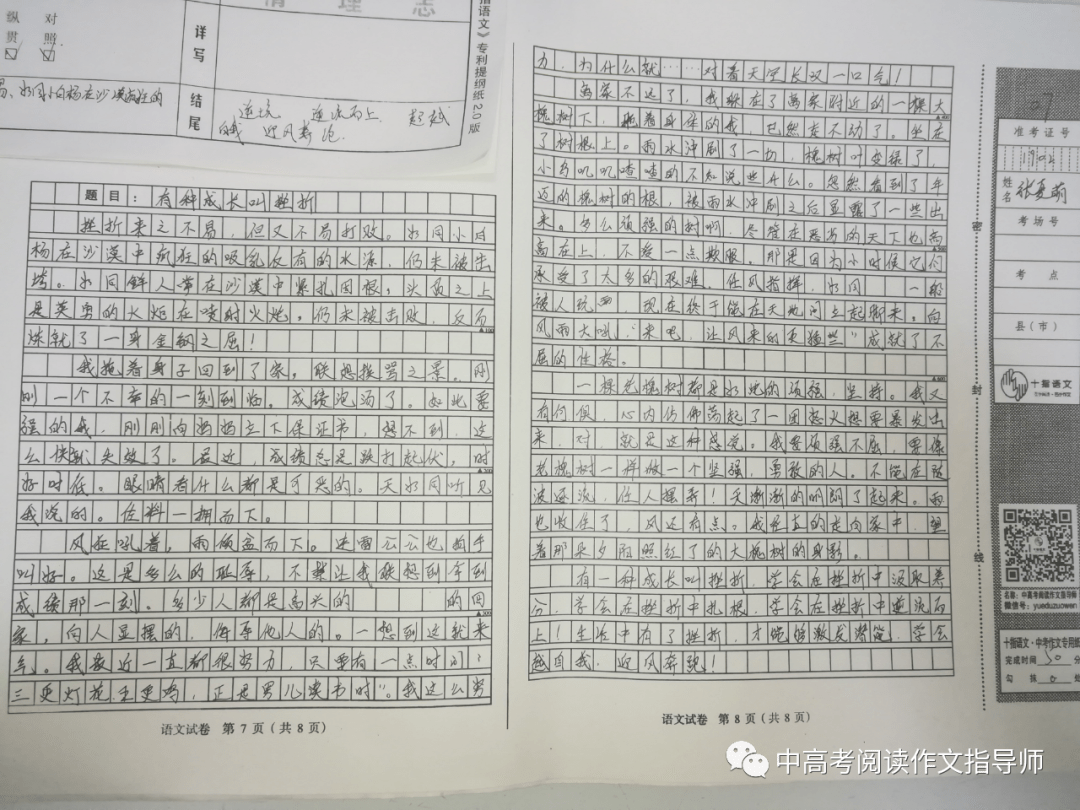 情理志
纵 对
贯 照
详写
结尾
逆境 逆流而上 超越
迎风奔跑
指语文》专利提纲纸2.0版
题目:有种成长叫挫折
挫折来之不易,但又不易打败。如同小白
杨在沙漠中疯狂的吸乳仅有的水源,仍未被击
垮。如同鲜人掌在沙漠中紧扎固根,头顶之上
是英勇的火炬在喷射火炮。仍未被击败,反而
炼就了一身金钢之屈!
我拖着身子回到了家,联想挨骂之景。刚
刚一个不幸的一刻到临。成绩泡汤了。如此要
强的我,刚刚向妈妈立下保证书,想不到,这
么快就失效了。最近,成绩总是跌打起伏,时
好时低。眼睛看什么都是可恶的。天如同听见
我说的。任料一拥而下。
风在吼着,雨倾盆而下。连雷公公也拍手
叫好。这是多么的耻辱,不禁让我联想到拿到
成绩那一刻。多少人都是高兴的 的回
家,向人显摆的,侮辱他人的。一想到这就来
气。我最近一直都很努力,只要有一点时间,
三更灯花五更鸡,正是男儿读书时”。我这么努
语文试卷 第7页(共8页)
力,为什么就……对着天空长叹一口气!
离家不远了,我躲在了离家附近的一棵大
槐树下,拖着身体的我,已然走不动了。坐在
了树根上。雨水冲刷了一切,槐树叶变绿了,
小鸟叽叽喳喳的不知说些什么。忽然看到了年
迈的槐树的根,被雨水冲刷之后显露了一些出
来。多么顽强的树啊,尽管在恶劣的天下也高
高在上,不受一点欺服。那是因为小时候它们
承受了太多的艰难。任风指挥,如同 一般
被人玩 ,现在终于能在天地间立起脚来。向
风雨大吼,“来吧,让风来的更猛些”成就了不
屈的性格。
一棵老槐树都是如此的顽强,坚持。我又
有何惧,心内仿佛荡起了一团怒火想要暴发出
来,对,就是这种感觉。我要顽强不屈,要像
老槐树一样做一个坚强,勇敢的人。不能在随
波逐流,任人摆弄!天渐渐的明朗了起来。雨
也收住了,风还有点。我径直的走向家中,望
着那朵夕阳照红了的大槐树的身影。
有一种成长叫挫折,学会在挫折中汲取养
分,学会在挫折中扎根,学会在挫折中逆流而
上!生活中有了挫折,才能够激发潜能,学会
越自我,迎风奔跑!
语文试卷 第8页(共8页)
准考证号
姓名
张夏萌
考场号
考点
县(市)
密
封
线
十指语文
名称:中高考阅读作文指导师
微信号:yueduzuowen
十指语文·中考作文专用纸
完成时间 50 分
勾抹 0 处
中高考阅读作文指导师